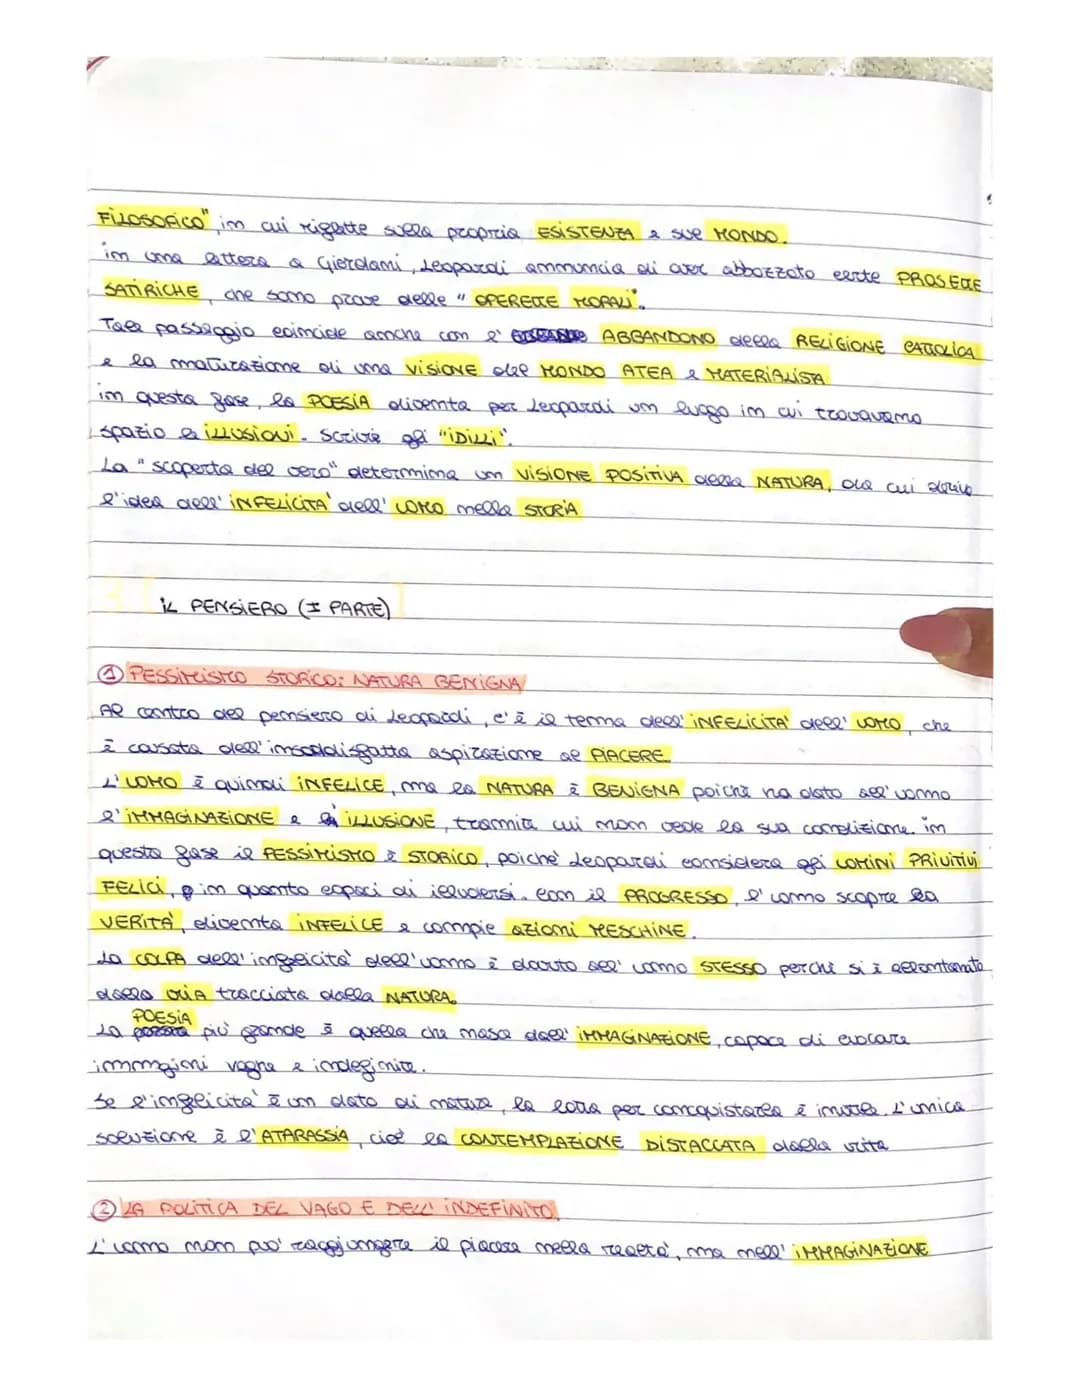 FILOSOFICO", in cui riflette sulla propria ESISTENZA e sul MONDO.
in una lettera a Gierdani, Leopardi annuncia di aver abbozzato certe PROSETTE
SATIRICHE, che sono prove delle "OPERETTE MORALI".
Tale passaggio coincide anche con l' ABBANDONO della RELIGIONE CATTOLICA
e la maturazione di una VISIONE del MONDO ATEA e MATERIALISTA
in questa fase, la POESIA diventa per Leopardi un luogo in cui trovavano
spazio le ILLUSIONI. Scrive gli "IDILLI".
La "scoperta del vero" determina un VISIONE POSITIVA della NATURA, da cui deriva
l'idea dell'INFELICITA' dell'UOMO nella STORIA
IL PENSIERO (I PARTE)
① PESSIMISMO STORICO: NATURA BENIGNA
Al centro del pensiero di Leopardi, c'è il tema dell'INFELICITA' dell'UOMO, che
è causata dell'insoddisfatta aspirazione al PIACERE.
L'UOMO è quindi INFELICE, ma la NATURA è BENIGNA poiché ha dato all'uomo
l'IMMAGINAZIONE e l'ILLUSIONE, tramite cui non vede la sua condizione. in
questa fase il PESSIMISMO è STORICO, poiche' Leopardi considera gli UOMINI PRIMITIVI
FELICI, in quanto capaci di illudersi. Con il PROGRESSO, l'uomo scopre la
VERITA', diventa INFELICE e compie azioni MESCHINE.
La COLPA dell'infelicita' dell'uomo è dovuto all'uomo STESSO perché si è allontanato
dalla VIA tracciata dalla NATURA.
La POESIA piu' grande è quella che nasce dall'IMMAGINAZIONE, capace di evocare
immagini vaghe e indefinite.
Se l'infelicita' è un dato di natura, la lotta per conquistarla è inutile. L'unica
soluzione è l'ATARASSIA, cioè la CONTEMPLAZIONE DISTACCATA dalla vita
② LA POLITICA DEL VAGO E DELL'INDEFINITO.
L'uomo non puo' raggiungere il piacere nella realta', ma nell'IMMAGINAZIONE